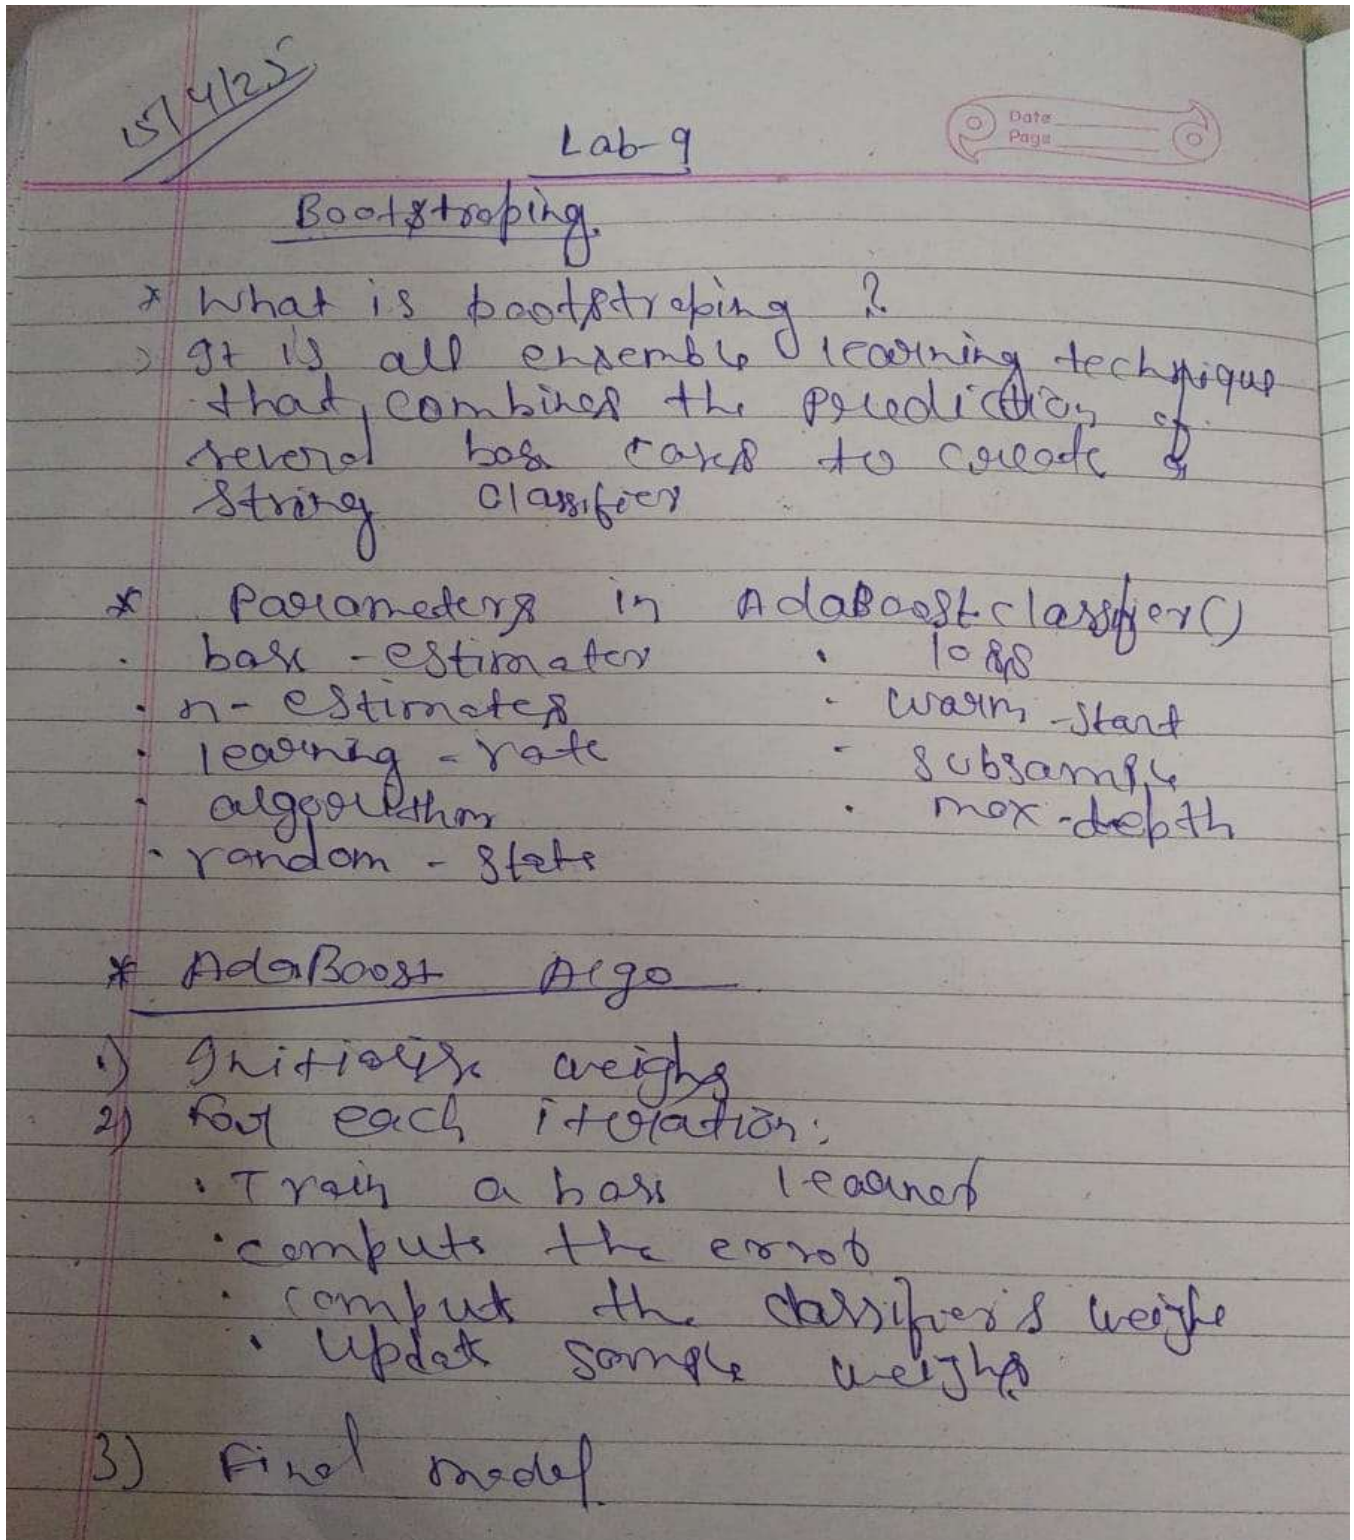 15/4/25
Date
Page
Lab-9
Bootstraping
* What is bootstraping ?
It is all ensemble learning technique
that combines the prediction of
several base cases to create a
string classifier
* Parameters in AdaBoostclassifier()
· base-estimator
· n-estimates
· learning-rate
· algorithm
· random-state
· loss
· warm-start
· subsample
· max-depth
* AdaBoost Algo
1) Initialise weighs
2) For each iteration:
· Train a base learner
· compute the error
· compute the classifier's weighe
· Update sample weighs
3) Final model